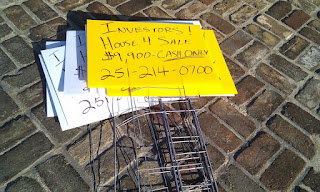 INVESTORS!
HOUSE 4 SALE
$9,900-CASH ONLY
251-214-0700
25